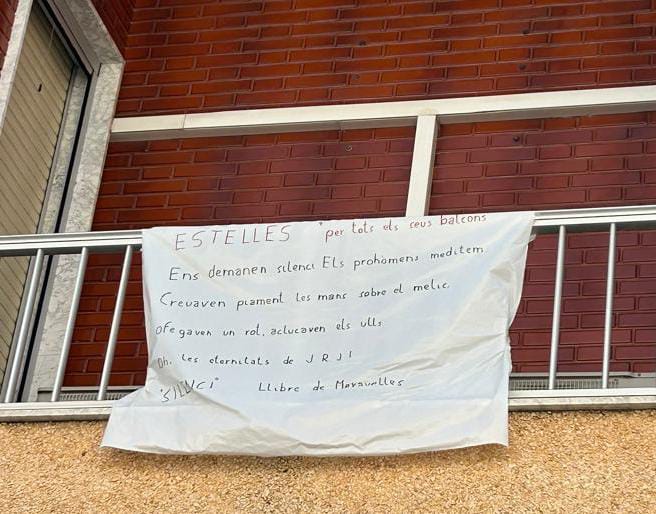 ESTELLES "per tots els seus balcons
Ens demanen silenci Els prohòmens mediten.
Creuaven piament les mans sobre el melic.
Ofegaven un rot, aclucaven els ulls
Oh. les eternitats de J R J!
"SILENCI" Llibre de Meravelles